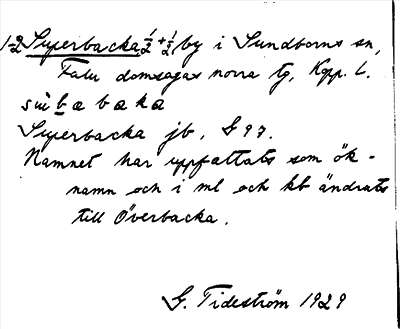 1-2 Superbacka 1/2 + 1/2, by i Sundborns sn,
Falu domsagas norra tg, Kopp. l.
Superbacka jb, S 97.
Namnet har uppfattats som ök-
namn och i ml och kb ändrats
till Överbacka.
G. Tideström 1929